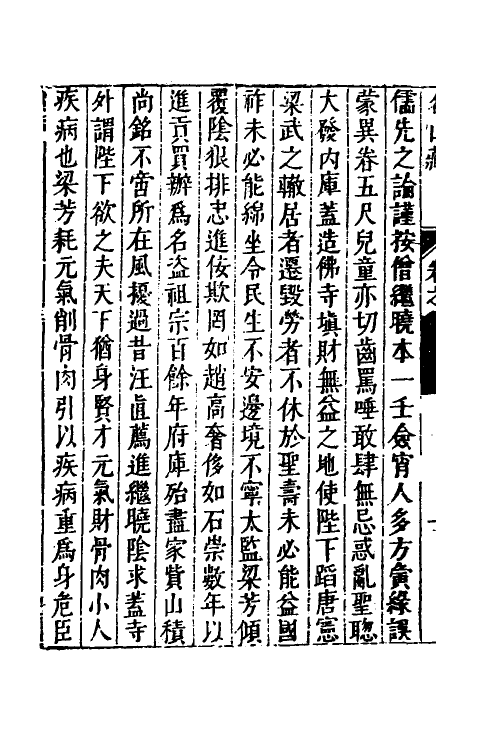 儒先之論謹按僧繼曉本一壬僉宵人多方夤緣誤
蒙異眷五尺兒童亦切齒罵唾敢肆無忌惑亂聖聦
大發內庫蓋造佛寺塡財無益之地使陛下蹈唐憲
梁武之轍居者遷毀勞者不休於聖壽未必能益國
祚未必能綿坐令民生不安邊境不寧太監梁芳傾
覆陰狠排忠進佞欺罔如趙高奢侈如石崇數年以
進貢買辦爲名盜祖宗百餘年府庫殆盡家貲山積
尚銘不啻所在風擾過昔汪直薦進繼曉陰求蓋寺
外謂陛下欲之夫天下猶身賢才元氣財骨肉小人
疾病也梁芳耗元氣削骨肉引以疾病重爲身危臣